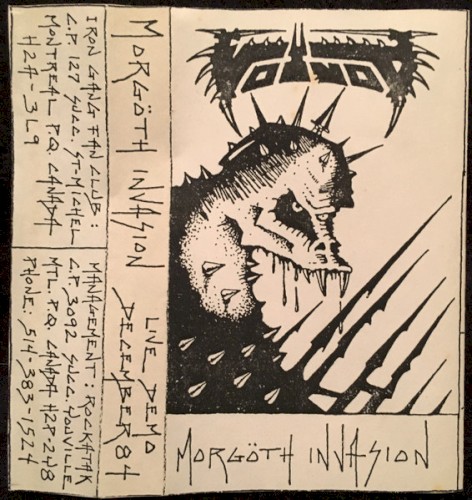 IRON GANG FAN CLUB :
C.P. 127 SUCC. ST-MICHEL
MONTREAL P.Q. CANADA
H2A-3L9
MANAGEMENT : ROCKATAK
C.P. 3092 SUCC. YOUVILLE
MTL. P.Q. CANADA H2P-2Y8
PHONE: 514-383-1524
MORGÖTH INVASION
LIVE DEMO
DECEMBER 84
VOIVOD
MORGÖTH INVASION